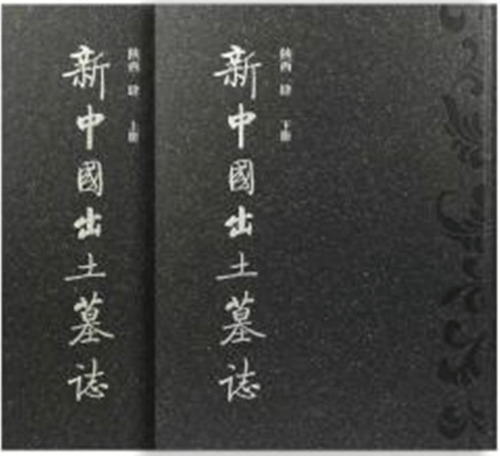 新中國出土墓誌
陝西 肆 上冊
新中國出土墓誌
陝西 肆 下冊